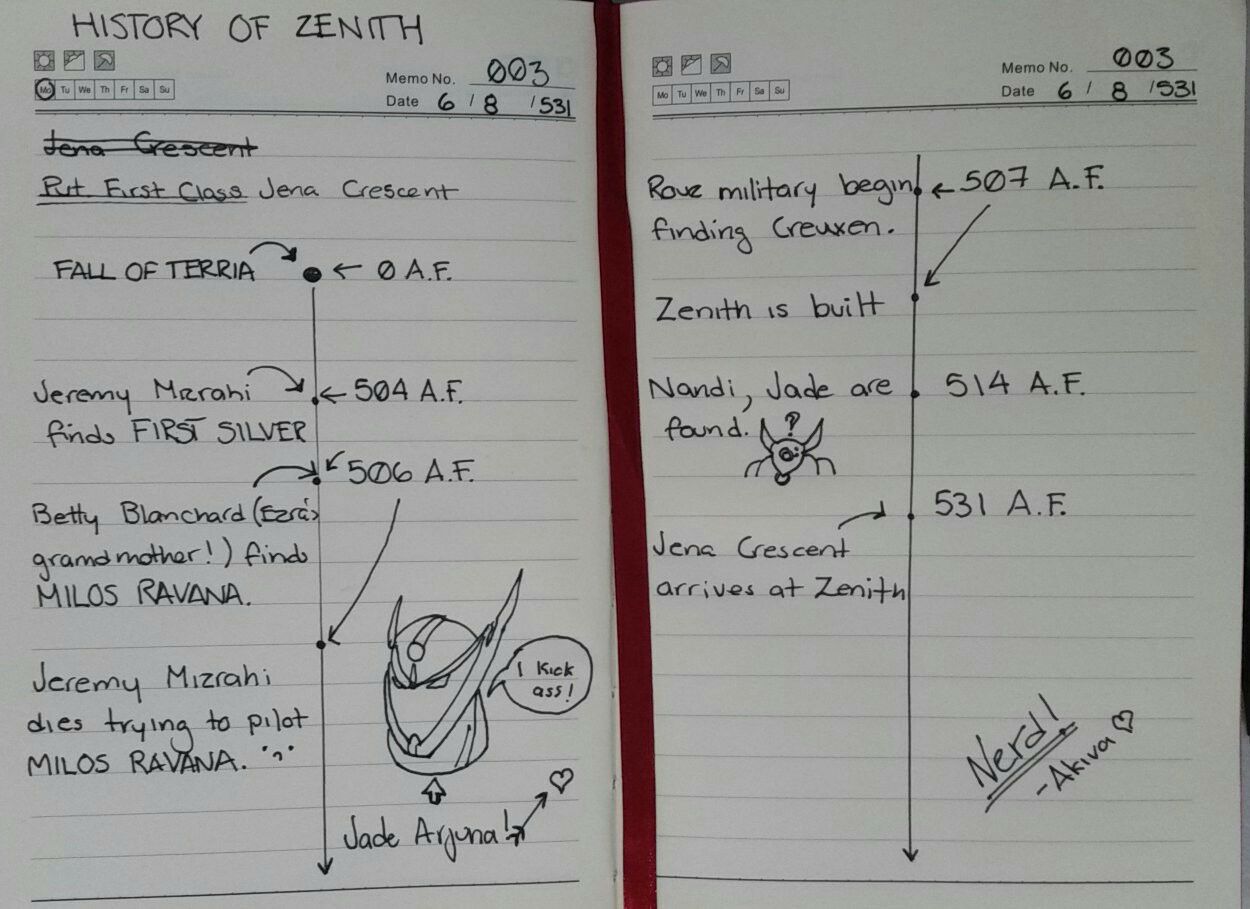 HISTORY OF ZENITH
Mo Tu We Th Fr Sa Su
Memo No. 003
Date 6 / 8 / 531
Jena Crescent
Pvt First Class Jena Crescent
FALL OF TERRIA
← 0 A.F.
Jeremy Mizrahi
← 504 A.F.
finds FIRST SILVER
506 A.F.
Betty Blanchard (Ezra's
grandmother!) finds
MILOS RAVANA.
Jeremy Mizrahi
dies trying to pilot
MILOS RAVANA.
I Kick
ass!
Jade Arjuna!
Memo No. 003
Mo Tu We Th Fr Sa Su
Date 6 / 8 / 531
Rove military begin
← 507 A.F.
finding Creuxen.
Zenith is built
Nandi, Jade are
514 A.F.
found.
?
531 A.F.
Jena Crescent
arrives at Zenith
Nerd!
-Akiva ♡